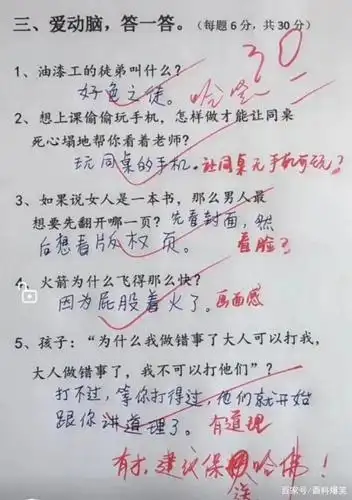 三、爱动脑，答一答。（每题6分，共30分）
30
1、油漆工的徒弟叫什么？
好色之徒。哈哈
2、想上课偷偷玩手机，怎样做才能让同桌
死心塌地帮你看着老师？
玩同桌的手机。让同桌无手机可玩？
3、如果说女人是一本书，那么男人最
想要先翻开哪一页？先看封面，然
后想看版权页。看脸了
4、火箭为什么飞得那么快？
因为屁股着火了。画面感
5、孩子：“为什么我做错事了大人可以打我，
大人做错事了，我不可以打他们”？
打不过，等你打得过，他们就开始
跟你讲道理了。有道理
有才，建议保送哈佛！
百家号/酱料爆笑